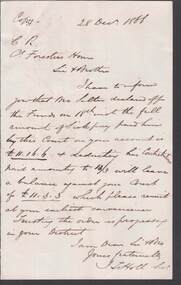 Copy
28 Dec 1866
C R
Ct Foresters Home
Sir & Brother
I have to inform
you that Mr declared off
the Funds on 18th inst the full
amount of Sick pay paid him
by this Court on your account is
£11.16.6 & deducting his
paid amounting to will leave
a balance against your Court
of £11.3.3 which please remit
at your earliest convenience
Trusting the order is progressing
in your District
I am Dear Sir & Bro
Yours fraternally